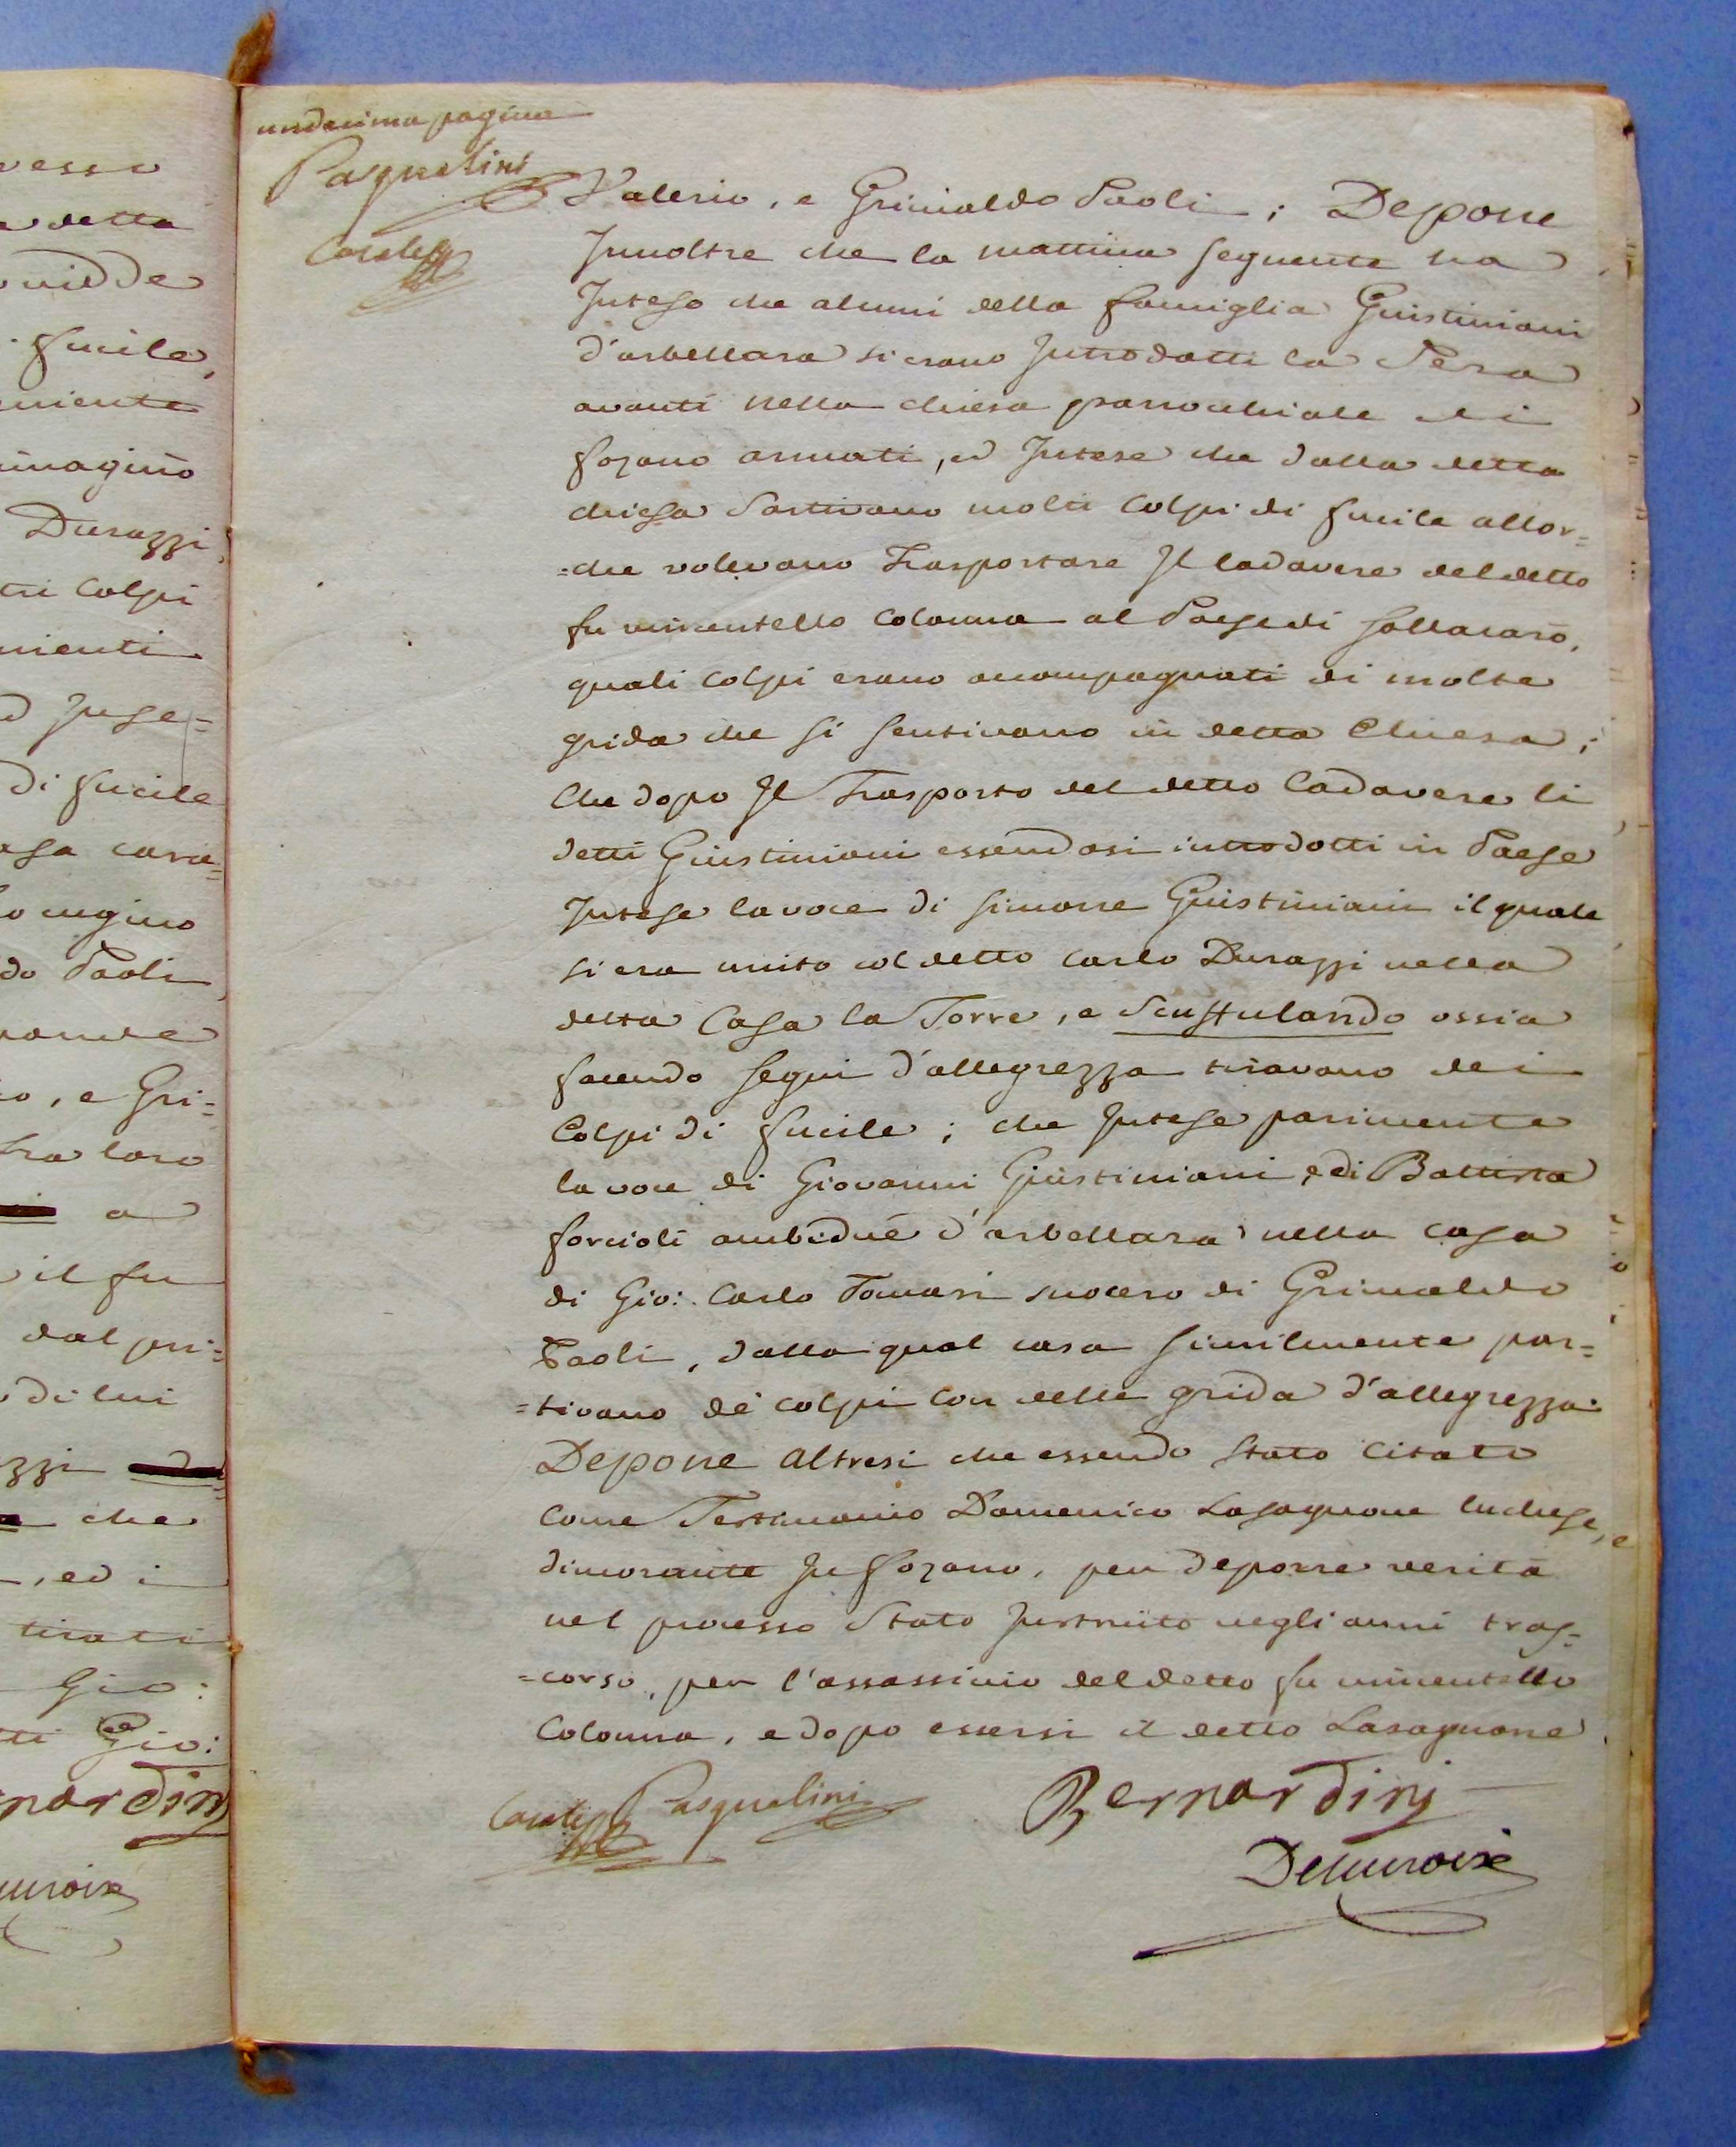 vesso
detta
vidde
fucile,
niente
imagino
Durazzi
tri Colpi
menti
d Inge=
di fucile
asa cava=
cugino
do Paoli
o, e Gri=
tra loro
a
il fu
dal pri=
di lui
zzi
che
, ed i
tirati
Gio:
tti Gio:
nardini
undecima pagina
Pasqualini
Casale
Valerio, e Grimaldo Paoli; Depone
Innoltre che la mattina seguente ha
Inteso che alcuni della famiglia Giustiniani
d'arbellara si erano Introdotti la Sera
avanti nella chiesa parrocchiale di
fozano armati, ed Intese che dalla detta
chiesa Partivano molti Colpi di fucile allor=
=che volevano Trasportare Il Cadavere del detto
fu vincentello Colonna al Paese di Sollacarò,
quali Colpi erano accompagnati di molte
grida che si sentivano in detta Chiesa;
Che dopo Il Trasporto del detto Cadavere li
detti Giustiniani essendosi introdotti in Paese
Intese la voce di Simone Giustiniani il quale
si era unito col detto Carlo Durazzi nella
detta Casa la Torre, e Scustulando ossia
facendo segni d'allegrezza tiravano dei
Colpi di fucile; che Intese parimente
la voce di Giovanni Giustiniani, e di Battista
forcioli ambidue d'arbellara nella casa
di Gio: Carlo Tomasi suocero di Grimaldo
Paoli, dalla qual casa similmente par=
=tivano de colpi con delle grida d'allegrezza.
Depone altresi che essendo stato Citato
Come Testimonio Domenico Lasagnone luchese, e
dimorante In fozano, per deporre verità
nel processo Stato Instruito negli anni tras=
=corso, per l'assassinio del detto fu vincentello
Colonna, e dopo essersi il detto Lasagnone
Casale Pasqualini
Bernardini